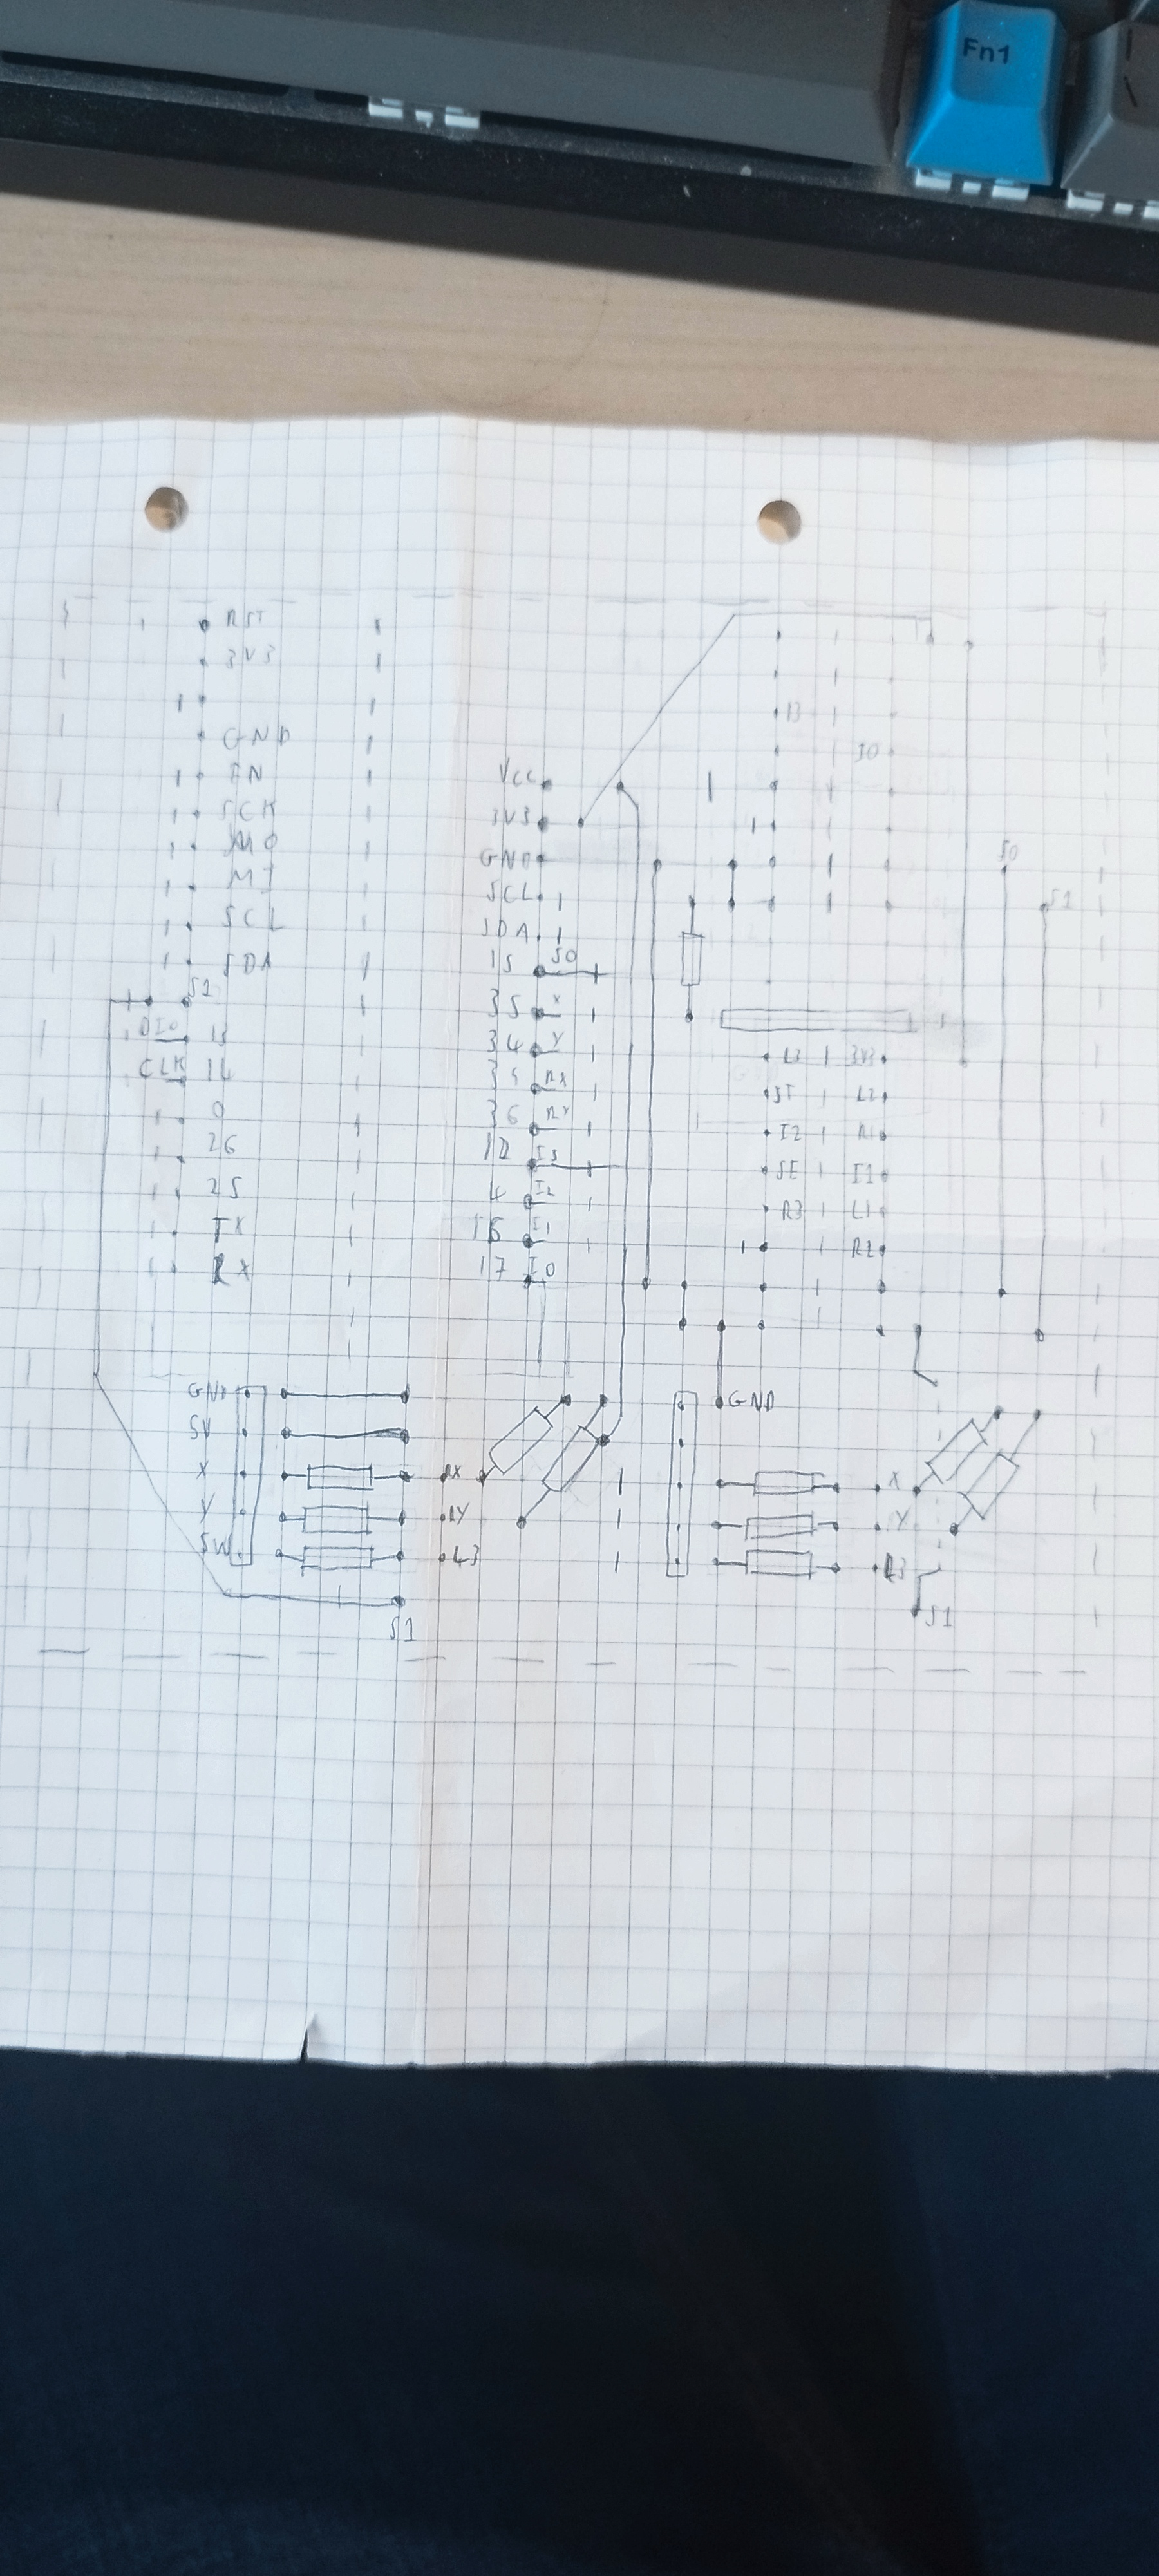 Fn1
RST
3V3
GND
EN
SCK
MO
MI
SCL
SDA
S1
DIO 13
CLK 14
0
26
25
TX
RX
VCC
3V3
GND
SCL
SDA
15 S0
35 X
34 Y
39 RX
36 RY
12 I3
4 I2
16 I1
17 I0
I3
I0
S0
S1
L3 3V3
ST L2
I2 R1
SE I1
R3 L1
R2
GND
5V
X RX
Y RY
SW L3
S1
GND
X
Y
R3
S1